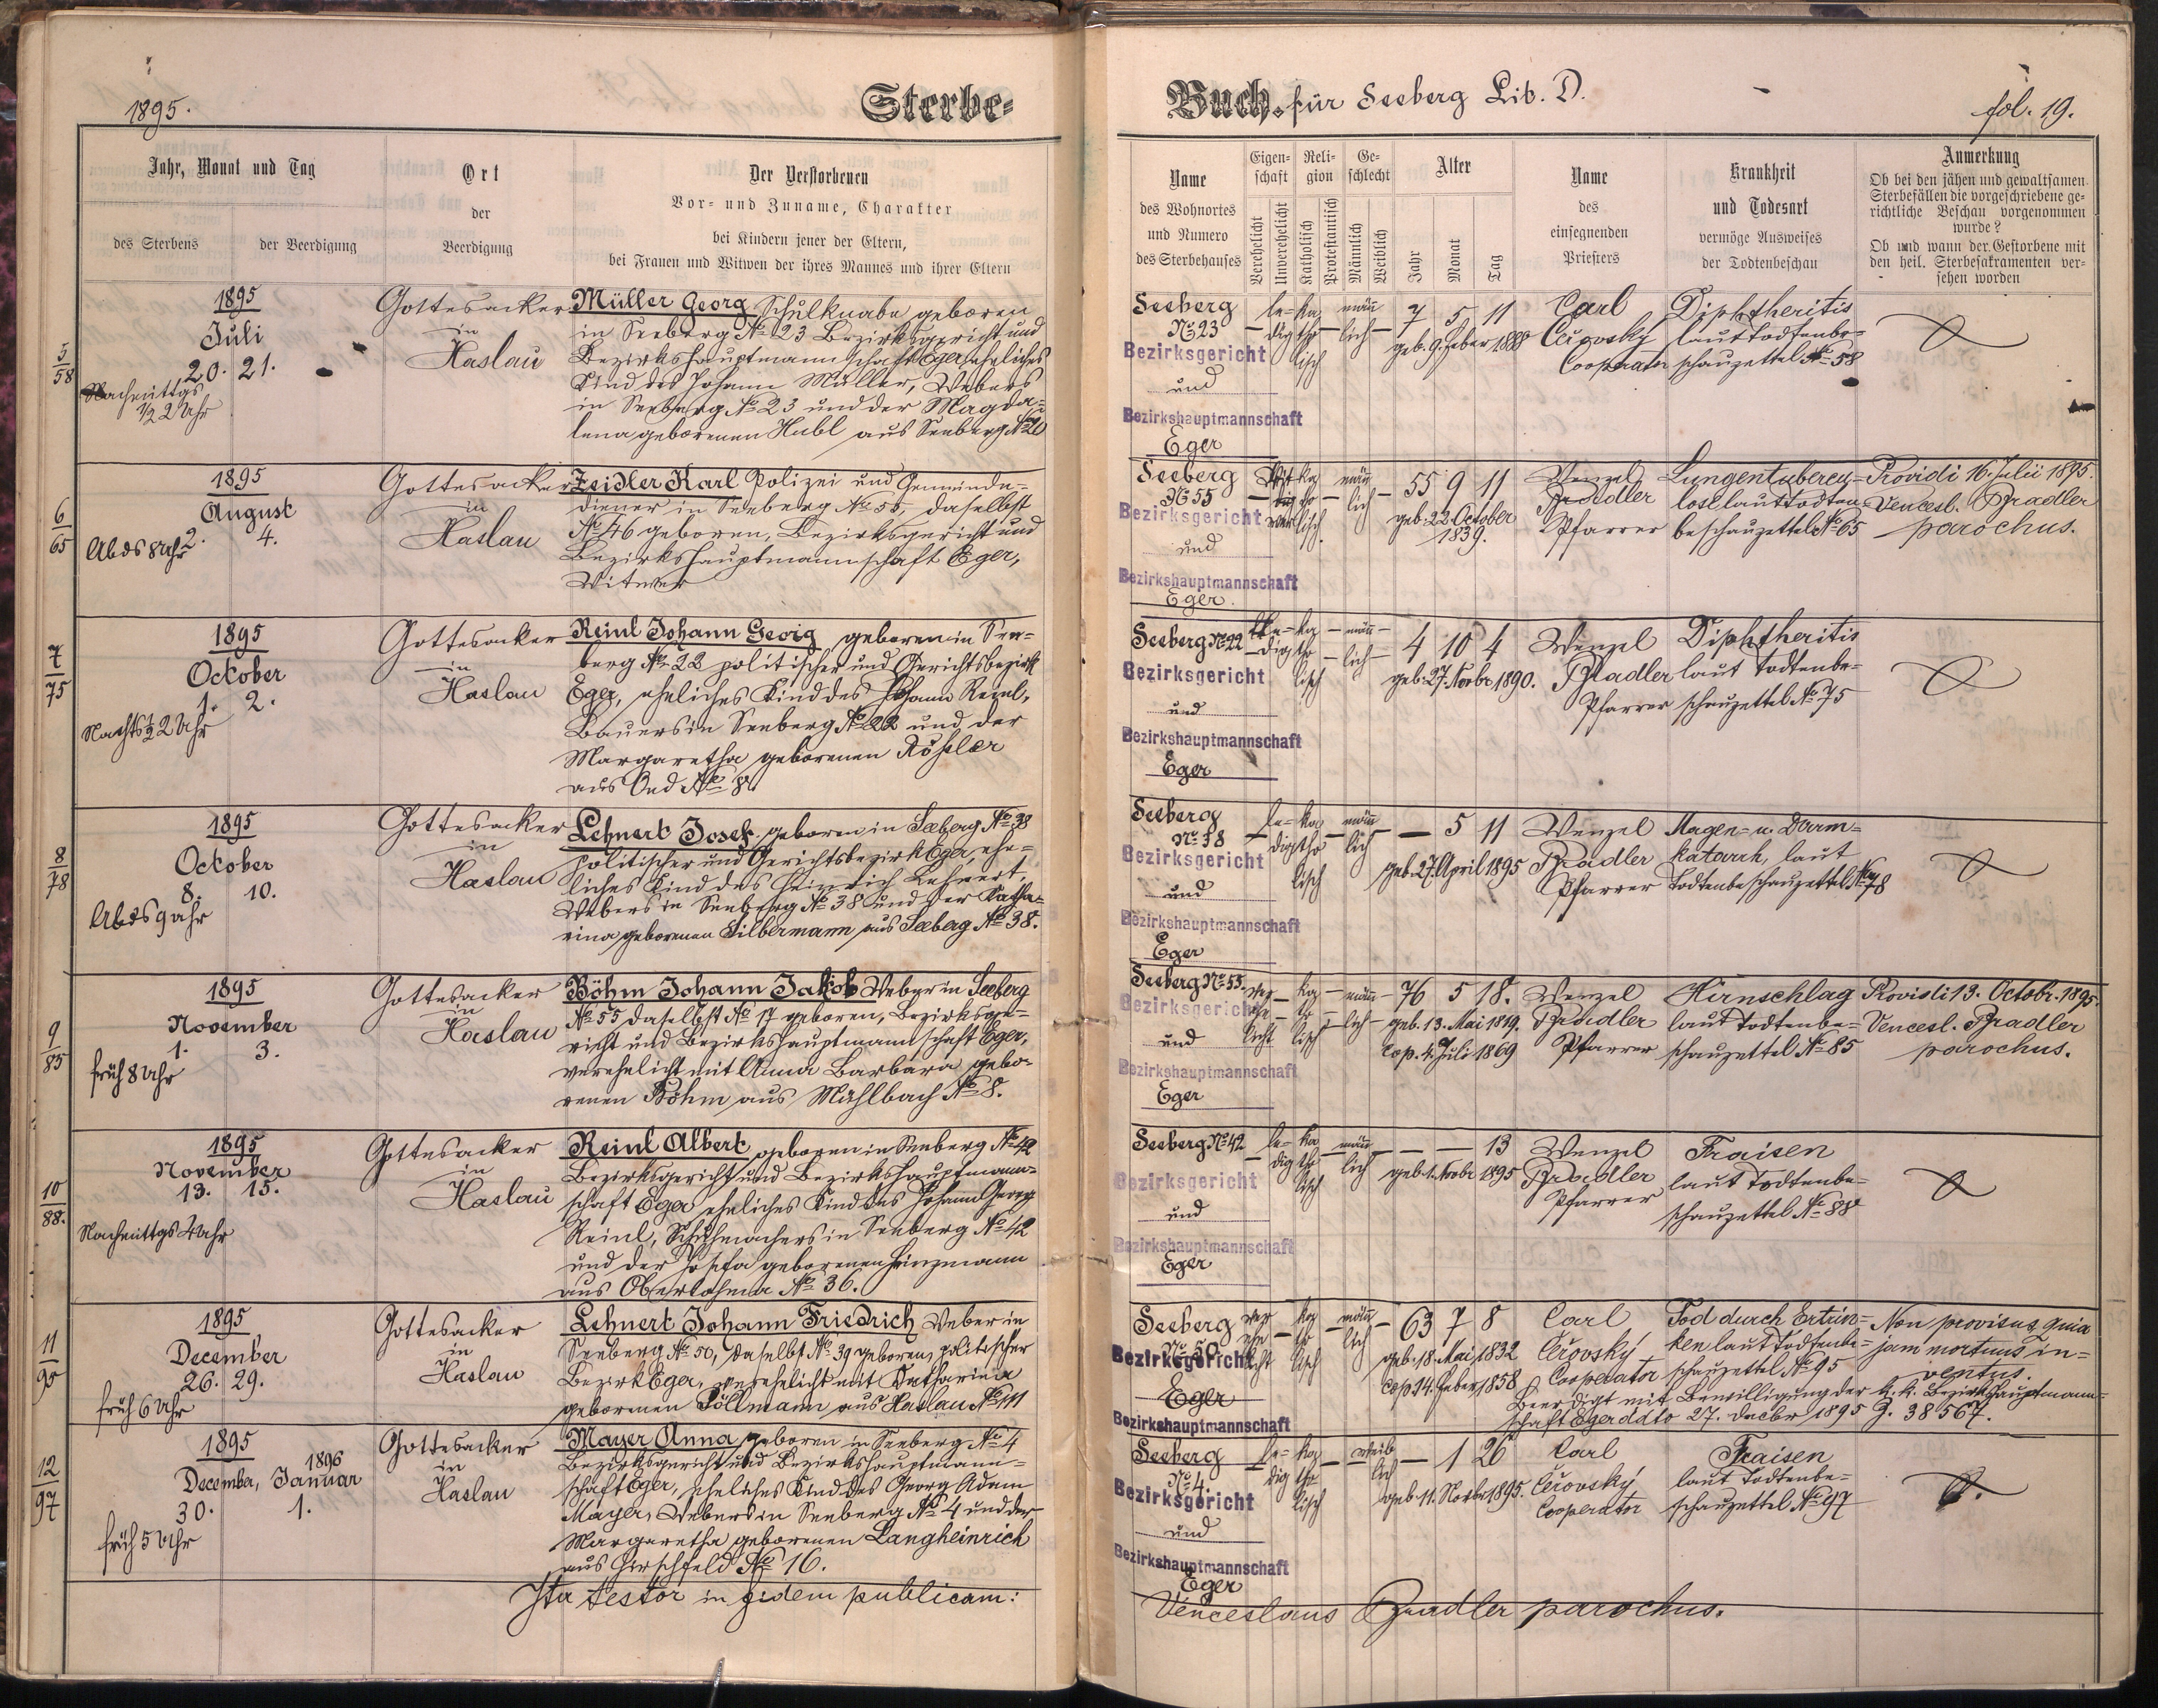 1895.
Sterbe-
Buch. für Seeberg Lib. D.
fol. 19.
Jahr, Monat und Tag
des Sterbens
der Beerdigung
Ort
der
Beerdigung
Der Verstorbenen
Vor- und Zuname, Charakter
bei Kindern jener der Eltern,
bei Frauen und Witwen der ihres Mannes und ihrer Eltern
Name
des Wohnortes
und Numero
des Sterbehauses
Eigen-
schaft
Verehelicht
Unverehelicht
Reli-
gion
Katholisch
Protestantisch
Ge-
schlecht
Männlich
Weiblich
Alter
Jahr
Monat
Tag
Name
des
einsegnenden
Priesters
Krankheit
und Todesart
vermöge Ausweises
der Todtenbeschau
Anmerkung
Ob bei den jähen und gewaltsamen
Sterbefällen die vorgeschriebene ge-
richtliche Beschau vorgenommen
wurde?
Ob und wann der Gestorbene mit
den heil. Sterbesakramenten ver-
sehen worden
5
58
1895
Juli
20. 21.
Nachmittgs
1/2 2 Uhr
Gottesacker
in
Haslau
Müller Georg Schulknabe geboren
in Seeberg No 23 Bezirksgericht und
Bezirkshauptmannschaft Eger, eheliches
Kind des Johann Müller, Webers
in Seeberg No 23 und der Magda-
lena geborenen Habl aus Seeberg No 20
Seeberg
No 23
Bezirksgericht
und
Bezirkshauptmannschaft
Eger
le-
dig
ka
tho
lisch
männ
lich
7 5 11
geb. 9. Feber 1888
Carl
Čeřovský
Cooperator
Diphtheritis
laut Todtenbe-
schauzettel No 58
6
65
1895
August
2. 4.
Abds 8 Uhr
Gottesacker
in
Haslau
Zeidler Karl Polizei und Gemeinde-
diener in Seeberg No 55, daselbst
No 46 geboren, Bezirksgericht und
Bezirkshauptmannschaft Eger,
Witwer
Seeberg
No 55
Bezirksgericht
und
Bezirkshauptmannschaft
Eger.
ka
tho
lisch.
männ
lich
55 9 11
geb. 22. October
1839.
Wenzel
Bradler
Pfarrer
Lungentubercu-
lose laut Todten-
beschauzettel No 65
Providi 16. Julii 1895.
Vencesl. Bradler
parochus.
7
75
1895
October
1. 2.
Nachts 1/2 2 Uhr
Gottesacker
in
Haslau
Reinl Johann Georg geboren in See-
berg No 22 politischer und Gerichtsbezirk
Eger, eheliches Kind des Johann Reinl,
Bauers in Seeberg No 22 und der
Margaretha geborenen Rößler
aus Oed No 8.
Seeberg No 22
Bezirksgericht
und
Bezirkshauptmannschaft
Eger
le-
dig
ka
tho
lisch
männ
lich
4 10 4
geb. 27. Novbr 1890.
Wenzel
Bradler
Pfarrer
Diphtheritis
laut Todtenbe-
schauzettel No 75
8
78
1895
October
8. 10.
Abds 9 Uhr
Gottesacker
in
Haslau
Lehnert Josef geboren in Seeberg No 38
politischer und Gerichtsbezirk Eger, ehe-
liches Kind des Heinrich Lehnert,
Webers in Seeberg No 38 und der Katha-
rina geborenen Silbermann aus Seeberg No 38.
Seeberg
No 38
Bezirksgericht
und
Bezirkshauptmannschaft
Eger
le-
dig
ka
tho
lisch
männ
lich
5 11
geb. 27. April 1895
Wenzel
Bradler
Pfarrer
Magen- u. Darm-
katarrh, laut
Todtenbeschauzettel No 78
9
85
1895
November
1. 3.
früh 8 Uhr
Gottesacker
in
Haslau
Böhm Johann Jakob Weber in Seeberg
No 55 daselbst No 17 geboren, Bezirksge-
richt und Bezirkshauptmannschaft Eger,
verehelicht mit Anna Barbara gebo-
renen Böhm aus Mühlbach No 8.
Seeberg No 55.
Bezirksgericht
und
Bezirkshauptmannschaft
Eger
ver
ehe
licht
ka
tho
lisch
männ
lich
76 5 18.
geb. 13. Mai 1819.
cop. 4. Juli 1869
Wenzel
Bradler
Pfarrer
Hirnschlag
laut Todtenbe-
schauzettel No 85
Providi 13. Octobr. 1895.
Vencesl. Bradler
parochus.
10
88.
1895
November
13. 15.
Nachmittgs 4 Uhr
Gottesacker
in
Haslau
Reinl Albert geboren in Seeberg No 42
Bezirksgericht und Bezirkshauptmann-
schaft Eger eheliches Kind des Johann Georg
Reinl, Schuhmachers in Seeberg No 42
und der Josefa geborenen Heinzmann
aus Oberlohma No 36.
Seeberg No 42
Bezirksgericht
und
Bezirkshauptmannschaft
Eger
le-
dig
ka
tho
lisch
männ
lich
13
geb. 1. Novbr 1895
Wenzel
Bradler
Pfarrer
Fraisen
laut Todtenbe-
schauzettel No 88
11
95
1895
December
26. 29.
früh 6 Uhr
Gottesacker
in
Haslau
Lehnert Johann Friedrich Weber in
Seeberg No 50, daselbst No 39 geboren, politischer
Bezirk Eger, verehelicht mit Katharina
geborenen Pöllmann aus Haslau No 111
Seeberg
No 50
Bezirksgericht
Eger
Bezirkshauptmannschaft
ver
ehe
licht
ka
tho
lisch
männ
lich
63 7 8
geb. 18. Mai 1832
cop 14. Feber 1858
Carl
Čeřovský
Cooperator
Tod durch Ertrin-
ken laut Todtenbe-
schauzettel No 95
Non provisus quia
jam mortuus in-
ventus.
Beerdigt mit Bewilligung der k. k. Bezirkshauptmann-
schaft Eger ddto 27. Decbr 1895 Z. 38567.
12
97
1895
1896
December, Januar
30. 1.
früh 5 Uhr
Gottesacker
in
Haslau
Mayer Anna geboren in Seeberg No 4
Bezirksgericht und Bezirkshauptmann-
schaft Eger, eheliches Kind des Georg Adam
Mayer, Webers in Seeberg No 4 und der
Margaretha geborenen Langheinrich
aus Hirschfeld No 16.
Seeberg
No 4.
Bezirksgericht
und
Bezirkshauptmannschaft
Eger
le-
dig
ka
tho
lisch
weib
lich
1 26
geb. 11. Novbr 1895.
Carl
Čeřovský
Cooperator
Fraisen
laut Todtenbe-
schauzettel No 97
Ita testor in fidem publicam:
Venceslaus Bradler parochus.